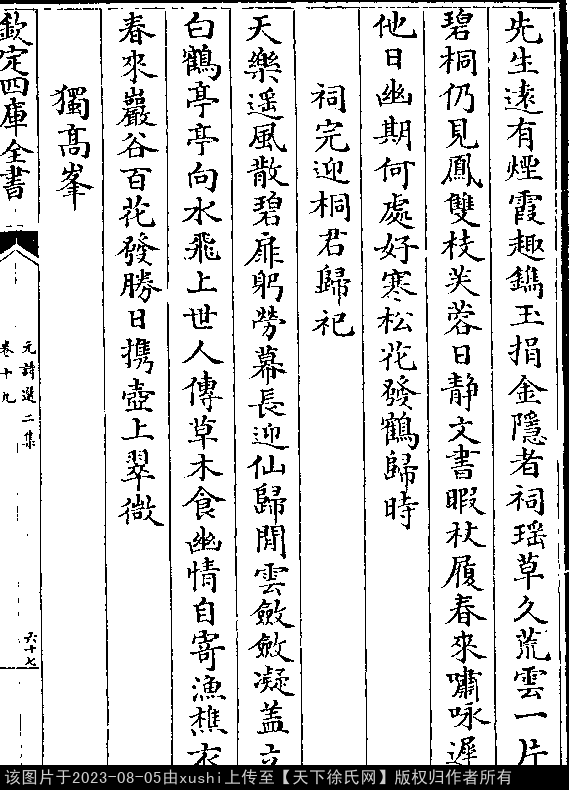 先生遠有煙霞趣鐫玉捐金隱者祠瑶草久荒雲一片
碧桐仍見鳳雙枝芙蓉日靜文書暇杖履春來嘯咏遲
他日幽期何處好寒松花發鶴歸時
祠完迎桐君歸祀
天樂遥風散碧雁躬勞幕長迎仙歸閒雲斂斂凝蓋立
白鶴亭亭向水飛上世人傳草木食幽情自寄漁樵衣
春來巖谷百花發勝日携壺上翠微
獨高峯
欽定四庫全書
元詩選二集
卷十九
六十七
该图片于2023-08-05由xushi上传至【天下徐氏网】版权归作者所有